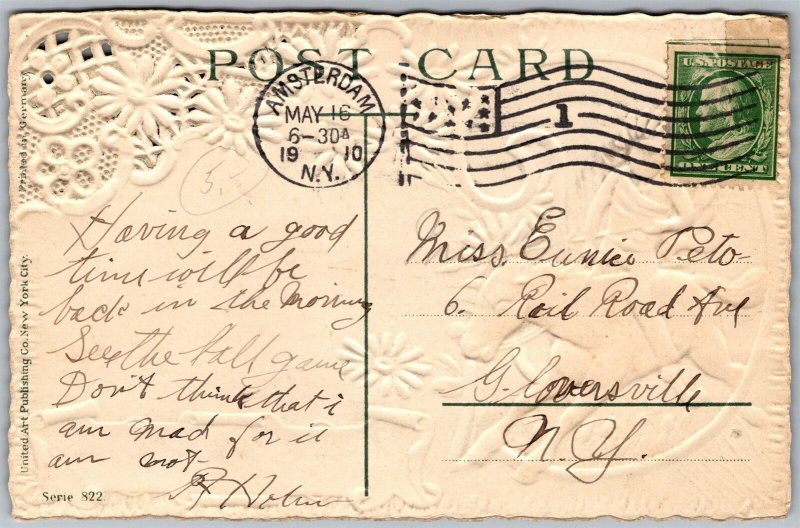 POST CARD
AMSTERDAM
MAY 16
6-30A
1910
N.Y.
1
U.S. POSTAGE
ONE CENT
Printed in Germany
United Art Publishing Co. New York City.
Serie 822.
5.
Having a good
time will be
back in the Morning
See the ball game
Don't think that i
am mad for it
am not
Miss Eunice Peto
6. Rail Road Ave
Gloversville
N.Y.